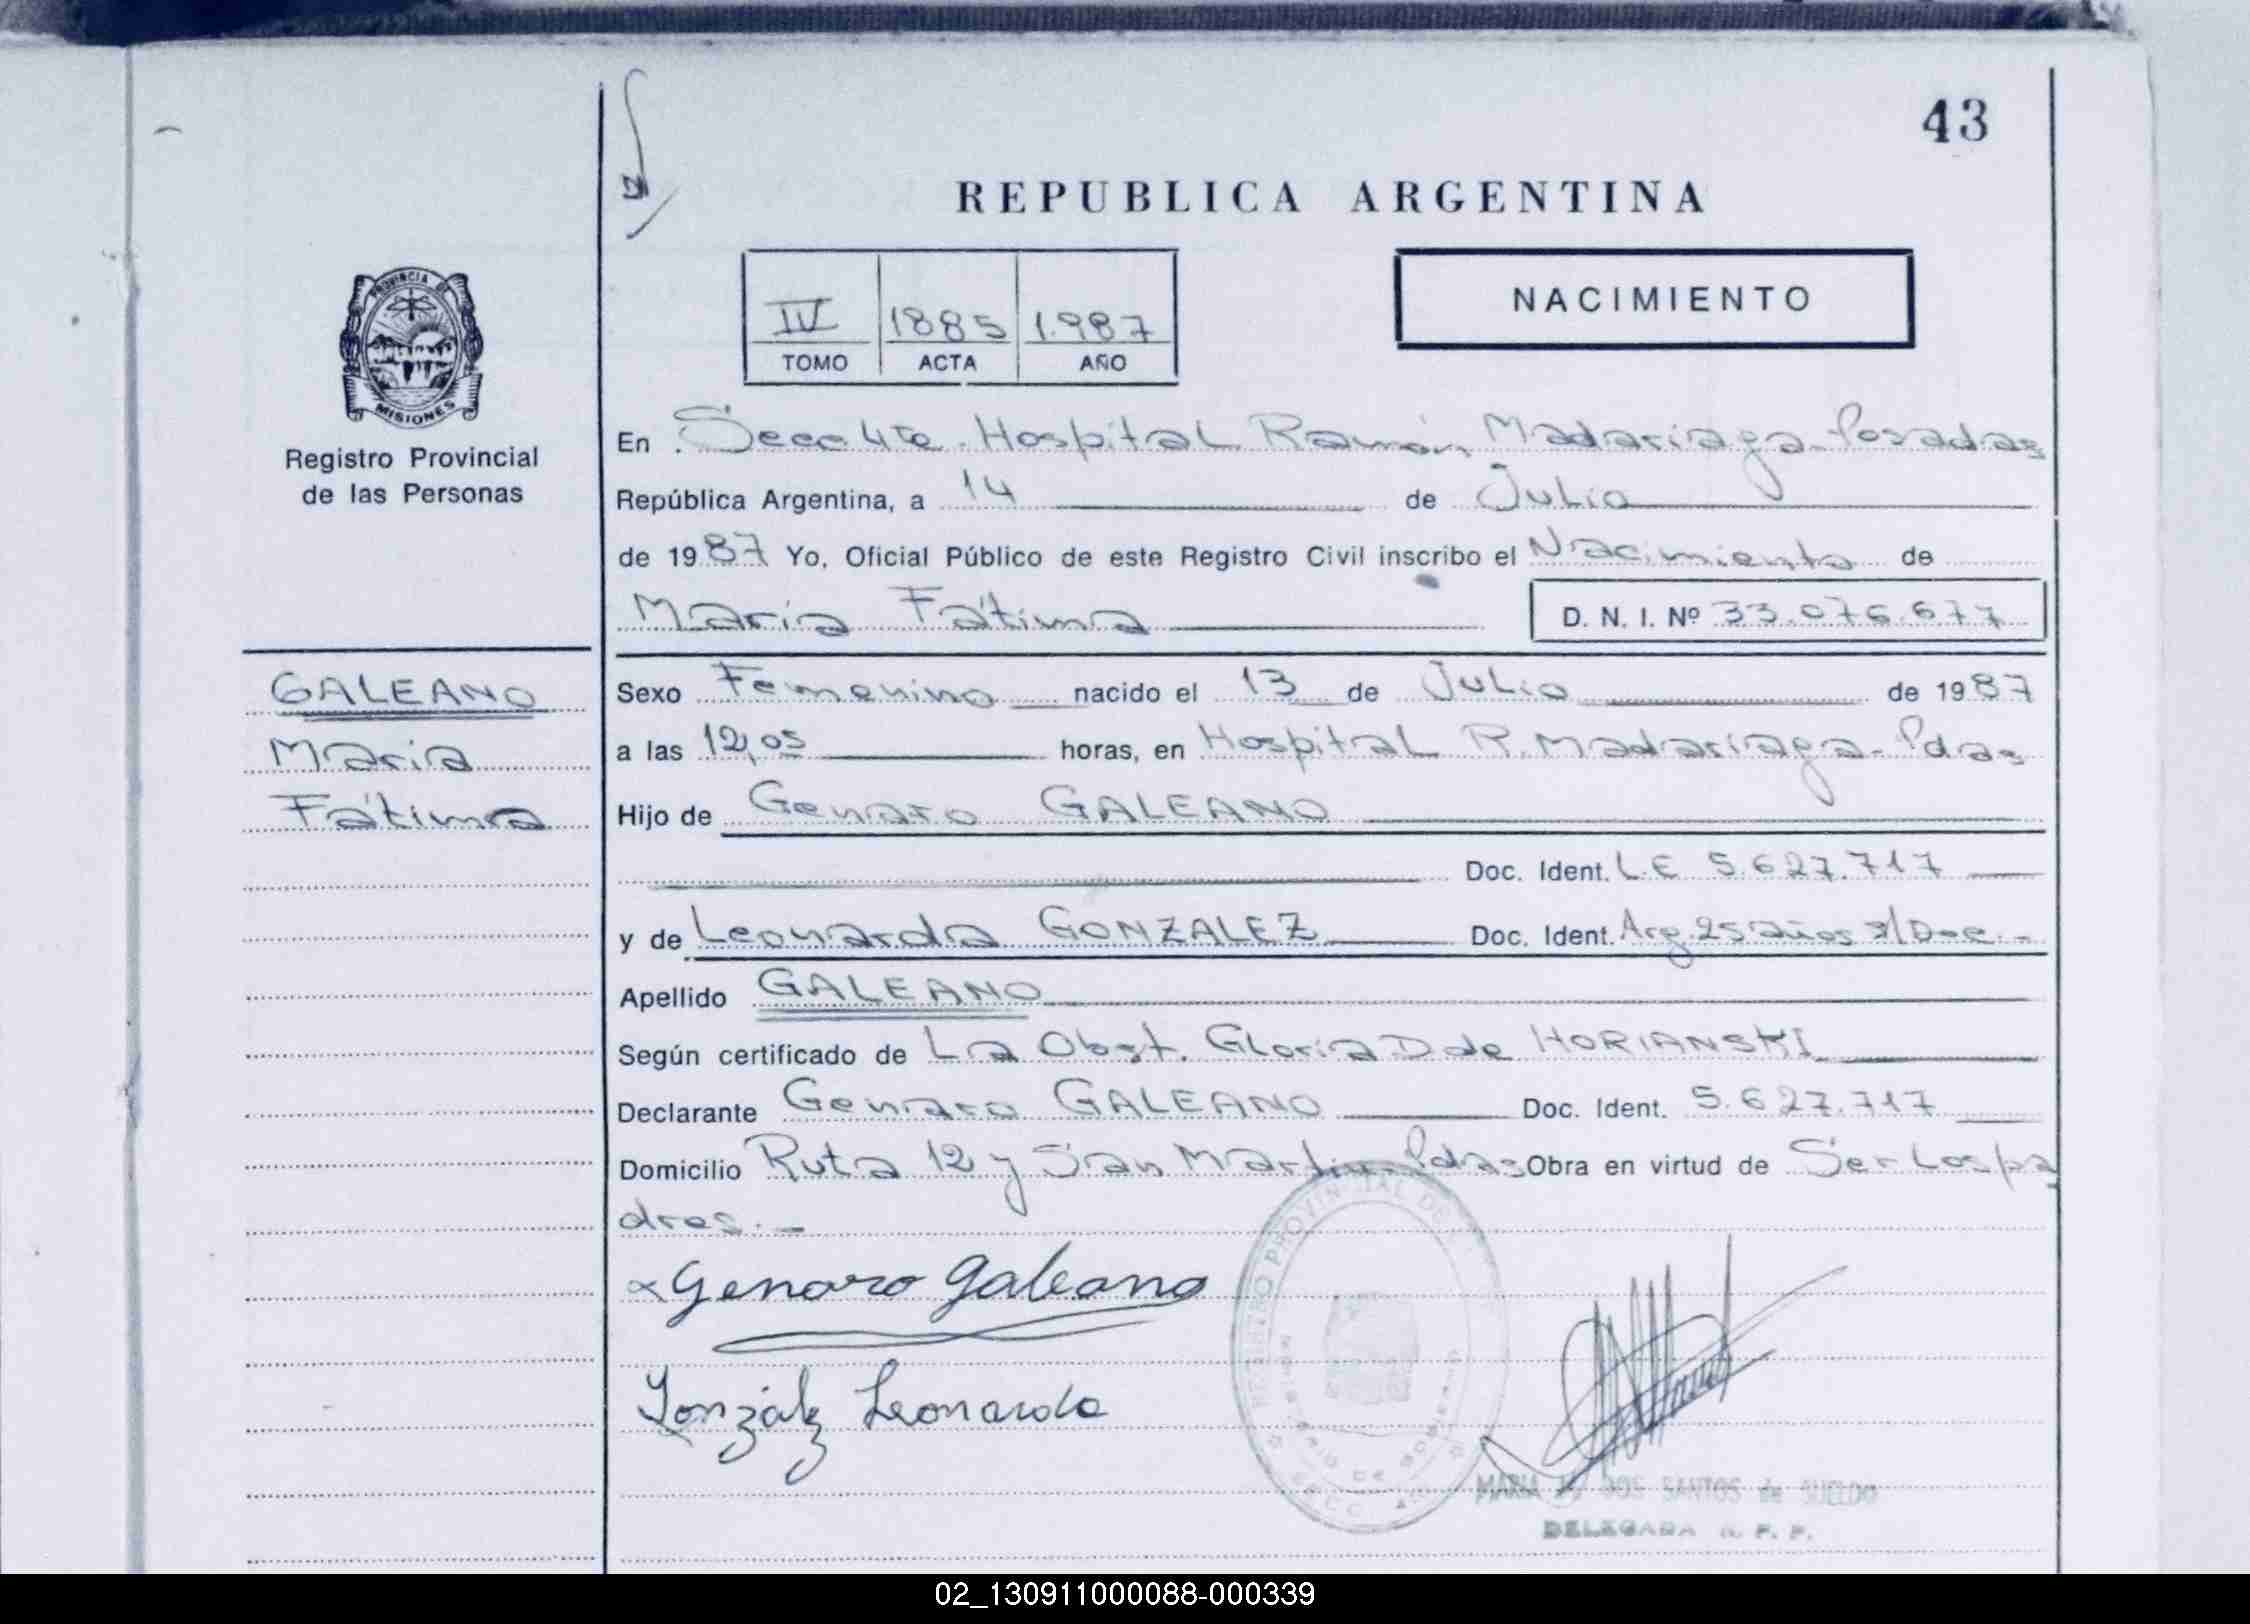 43
REPUBLICA ARGENTINA
IV 1885 1.987
TOMO ACTA AÑO
NACIMIENTO
PROVINCIA DE
MISIONES
Registro Provincial
de las Personas
GALEANO
Maria
Fátima
En Secc 4ta. Hospital Ramón Madariaga - Posadas
República Argentina, a 14 de Julio
de 1987 Yo, Oficial Público de este Registro Civil inscribo el Nacimiento de
María Fátima D. N. I. Nº 33.076.677
Sexo Femenino nacido el 13 de Julio de 1987
a las 12,05 horas, en Hospital R. Madariaga - Pdas
Hijo de Genaro GALEANO
Doc. Ident. L.E 5.627.717
y de Leonarda GONZALEZ Doc. Ident. Arg. 25 años s/Doc.-
Apellido GALEANO
Según certificado de La Obst. Gloria D de HORIANSKI
Declarante Genaro GALEANO Doc. Ident. 5.627.717
Domicilio Ruta 12 y San Martin Pdas Obra en virtud de Ser Los pa
dres.-
Genaro Galeano
Gonzálz Leonarda
REGISTRO PROVINCIAL DE
MARIA DOS SANTOS de SUELDO
DELEGADA R. P. P.
02_130911000088-000339